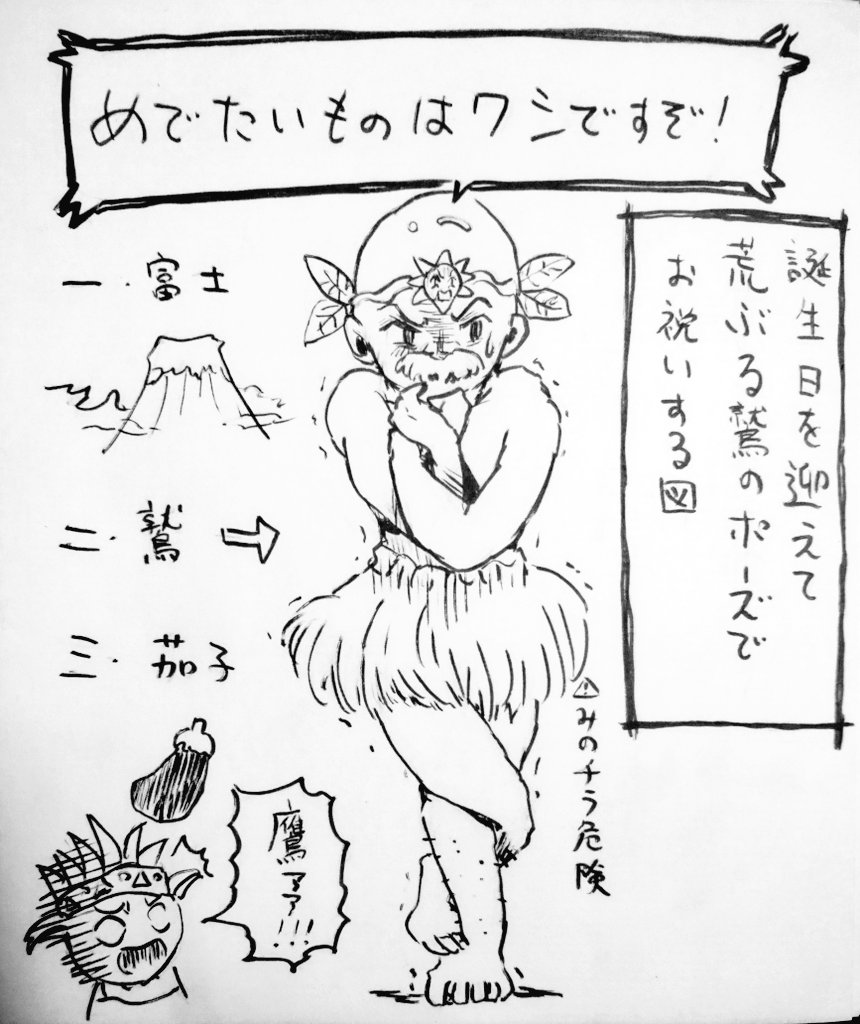 めでたいものはワシですぞ!
誕生日を迎えて
荒ぶる鷲のポーズで
お祝いする図
一.富士
二.鷲
三.茄子
⚠みのチラ危険
鷹ァァ!!!